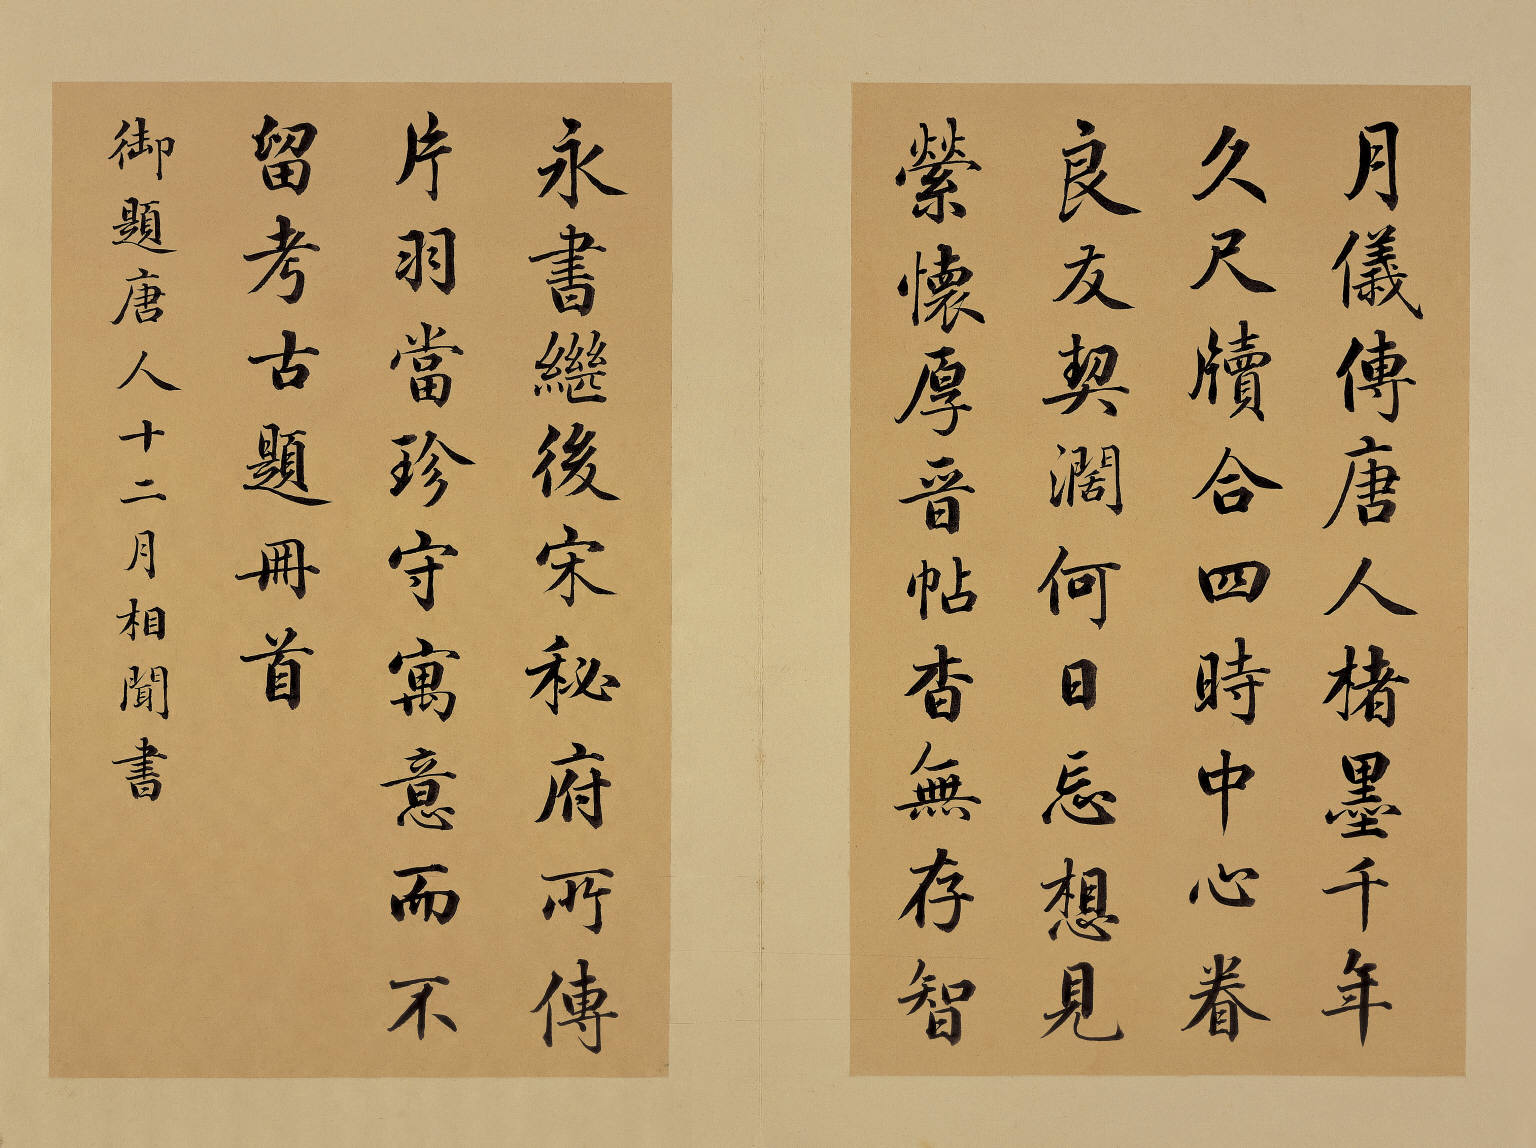 月儀傳唐人楮墨千年
久尺牘合四時中心眷
良友契濶何日忘想見
縈懷厚晉帖杳無存智
永書繼後宋秘府所傳
片羽當珍守寓意而不
留考古題冊首
御題唐人十二月相聞書